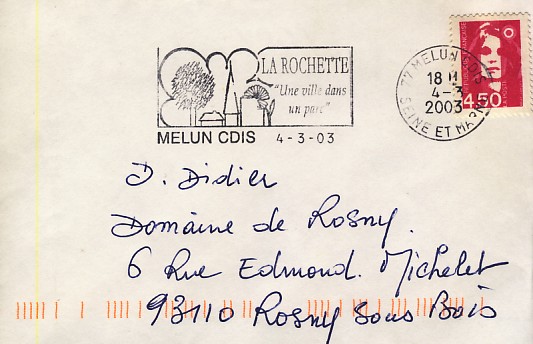 LA ROCHETTE
"Une ville dans
un parc"
MELUN CDIS 4-3-03
77 MELUN CDIS
18 H
4-3
2003
SEINE ET MARNE
4,50
D. Didier
Domaine de Rosny.
6 Rue Edmond. Michelet
93110 Rosny Sous Bois